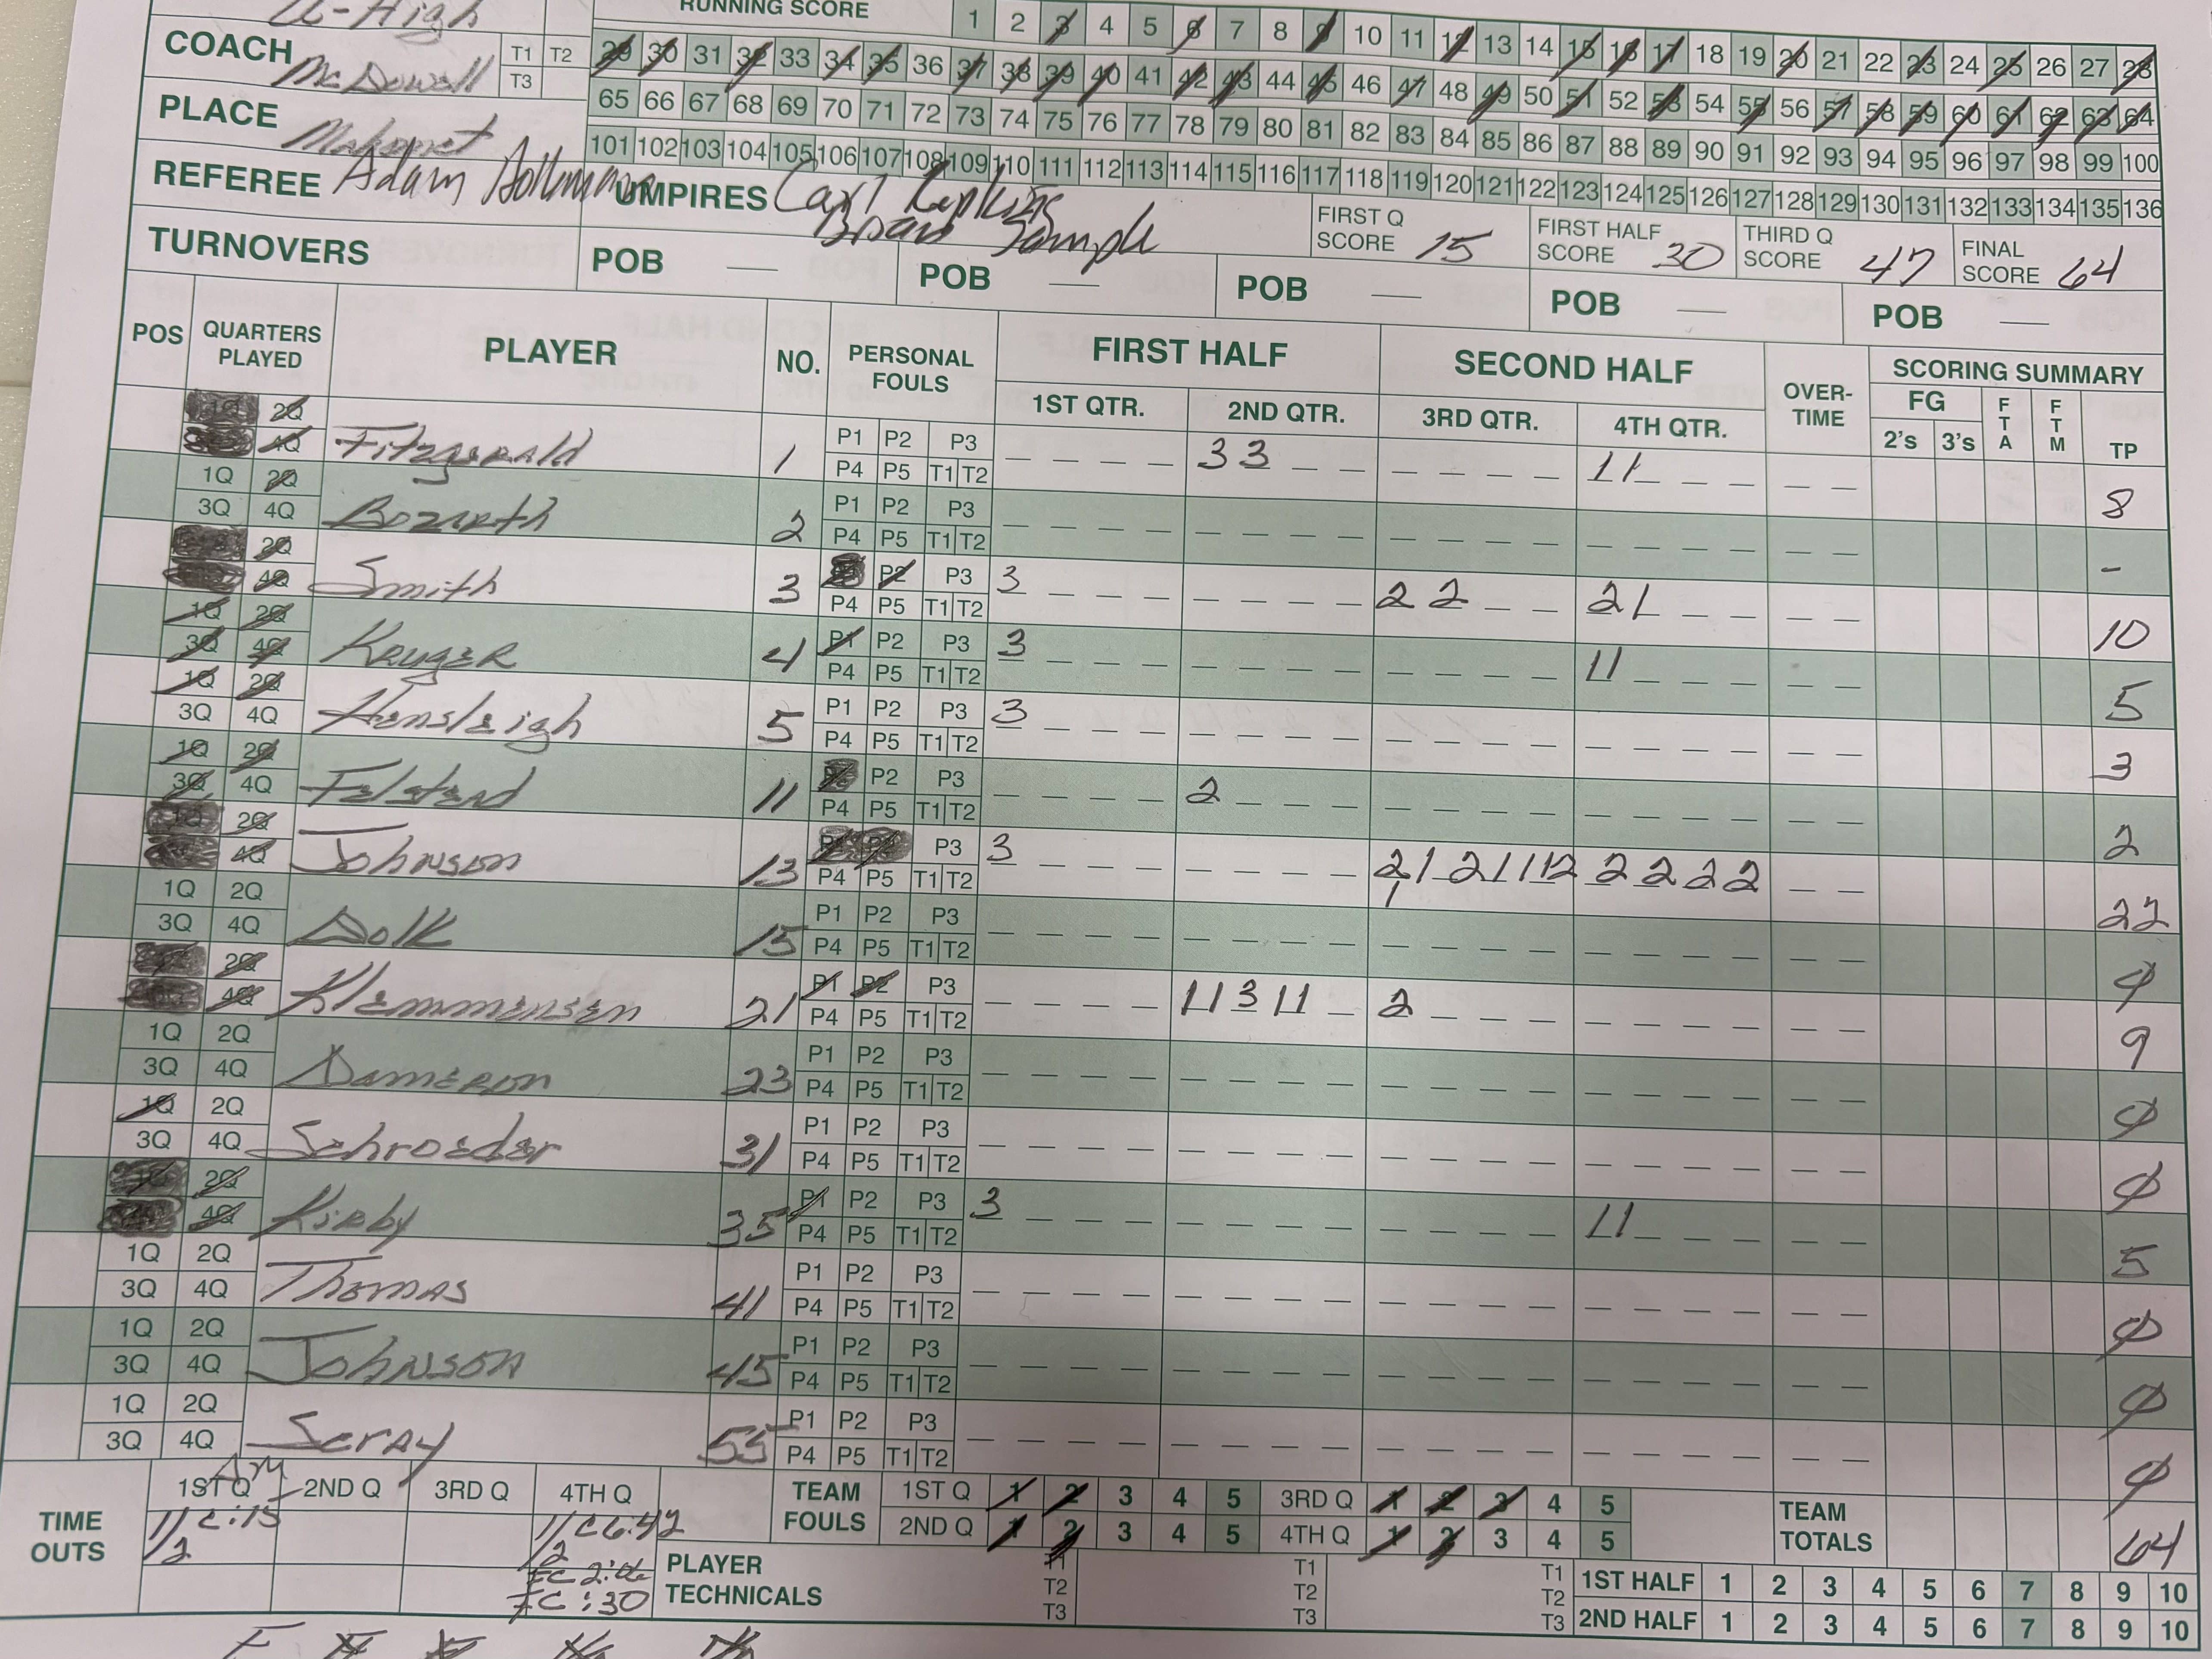 U-High
RUNNING SCORE 1 2 3 4 5 6 7 8 9 10 11 12 13 14 15 16 17 18 19 20 21 22 23 24 25 26 27 28
COACH McDowell T1 T2 T3
29 30 31 32 33 34 35 36 37 38 39 40 41 42 43 44 45 46 47 48 49 50 51 52 53 54 55 56 57 58 59 60 61 62 63 64
PLACE Mahomet
65 66 67 68 69 70 71 72 73 74 75 76 77 78 79 80 81 82 83 84 85 86 87 88 89 90 91 92 93 94 95 96 97 98 99 100
101 102 103 104 105 106 107 108 109 110 111 112 113 114 115 116 117 118 119 120 121 122 123 124 125 126 127 128 129 130 131 132 133 134 135 136
REFEREE Adam UMPIRES Carl
Brian Sample
FIRST Q SCORE 15 FIRST HALF SCORE 30 THIRD Q SCORE 47 FINAL SCORE 64
TURNOVERS POB — POB — POB — POB — POB —
POS QUARTERS PLAYED PLAYER NO. PERSONAL FOULS FIRST HALF SECOND HALF OVER-TIME SCORING SUMMARY
1ST QTR. 2ND QTR. 3RD QTR. 4TH QTR. FG FTA FTM TP
2's 3's
2Q Fitzgerald 1 P1 P2 P3 3 3 1 1 8
4Q P4 P5 T1 T2
1Q 2Q Bozarth 2 P1 P2 P3 -
3Q 4Q P4 P5 T1 T2
2Q Smith 3 P2 P3 3 2 2 2 1 10
4Q P4 P5 T1 T2
1Q 2Q Kruger 4 P1 P2 P3 3 1 1 5
3Q 4Q P4 P5 T1 T2
1Q 2Q Hensleigh 5 P1 P2 P3 3 3
3Q 4Q P4 P5 T1 T2
1Q 2Q Folstend 11 P2 P3 2 2
3Q 4Q P4 P5 T1 T2
2Q Johnson 13 P3 3 2 1 2 1 1 1 2 2 2 2 2 22
4Q P4 P5 T1 T2 1
1Q 2Q Dolk 15 P1 P2 P3 0
3Q 4Q P4 P5 T1 T2
2Q Klemmensen 21 P1 P2 P3 1 1 3 1 1 2 9
4Q P4 P5 T1 T2
1Q 2Q Dameron 23 P1 P2 P3 0
3Q 4Q P4 P5 T1 T2
1Q 2Q Schroeder 31 P1 P2 P3 0
3Q 4Q P4 P5 T1 T2
2Q Kirby 35 P1 P2 P3 3 1 1 5
4Q P4 P5 T1 T2
1Q 2Q Thomas 41 P1 P2 P3 0
3Q 4Q P4 P5 T1 T2
1Q 2Q Johnson 45 P1 P2 P3 0
3Q 4Q P4 P5 T1 T2
1Q 2Q Scray 55 P1 P2 P3 0
3Q 4Q P4 P5 T1 T2
TIME OUTS 1ST Q 2ND Q 3RD Q 4TH Q
:15 6:42
2 2
:30
TEAM FOULS 1ST Q 1 2 3 4 5 3RD Q 1 2 3 4 5
2ND Q 1 2 3 4 5 4TH Q 1 2 3 4 5
TEAM TOTALS 64
PLAYER TECHNICALS T1 T2 T3 T1 T2 T3 T1 T2 T3
1ST HALF 1 2 3 4 5 6 7 8 9 10
2ND HALF 1 2 3 4 5 6 7 8 9 10